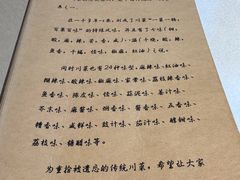 在一个多年一来，形成了川菜"一菜一格，
百菜百味"的特殊风味，并且有了七味（甜，
酸，麻，辣，苦，香，咸）八滋（干烧，酸，辣，
鱼香，干煸，怪味，椒麻，红油）之说。
同时川菜也有24种味型，麻辣味、红油味、
糊辣味、酸辣味、椒麻味、家常味、荔枝辣香味、
鱼香味、陈皮味、怪味、蒜泥味、姜汁味、
芥末味、麻酱味、烟香味、酱香味、五香味、
糟香味、咸鲜味、豉汁味、茄汁味、醇甜味、
荔枝味、糖醋味。
为重拾被遗忘的传统川菜，希望让大家